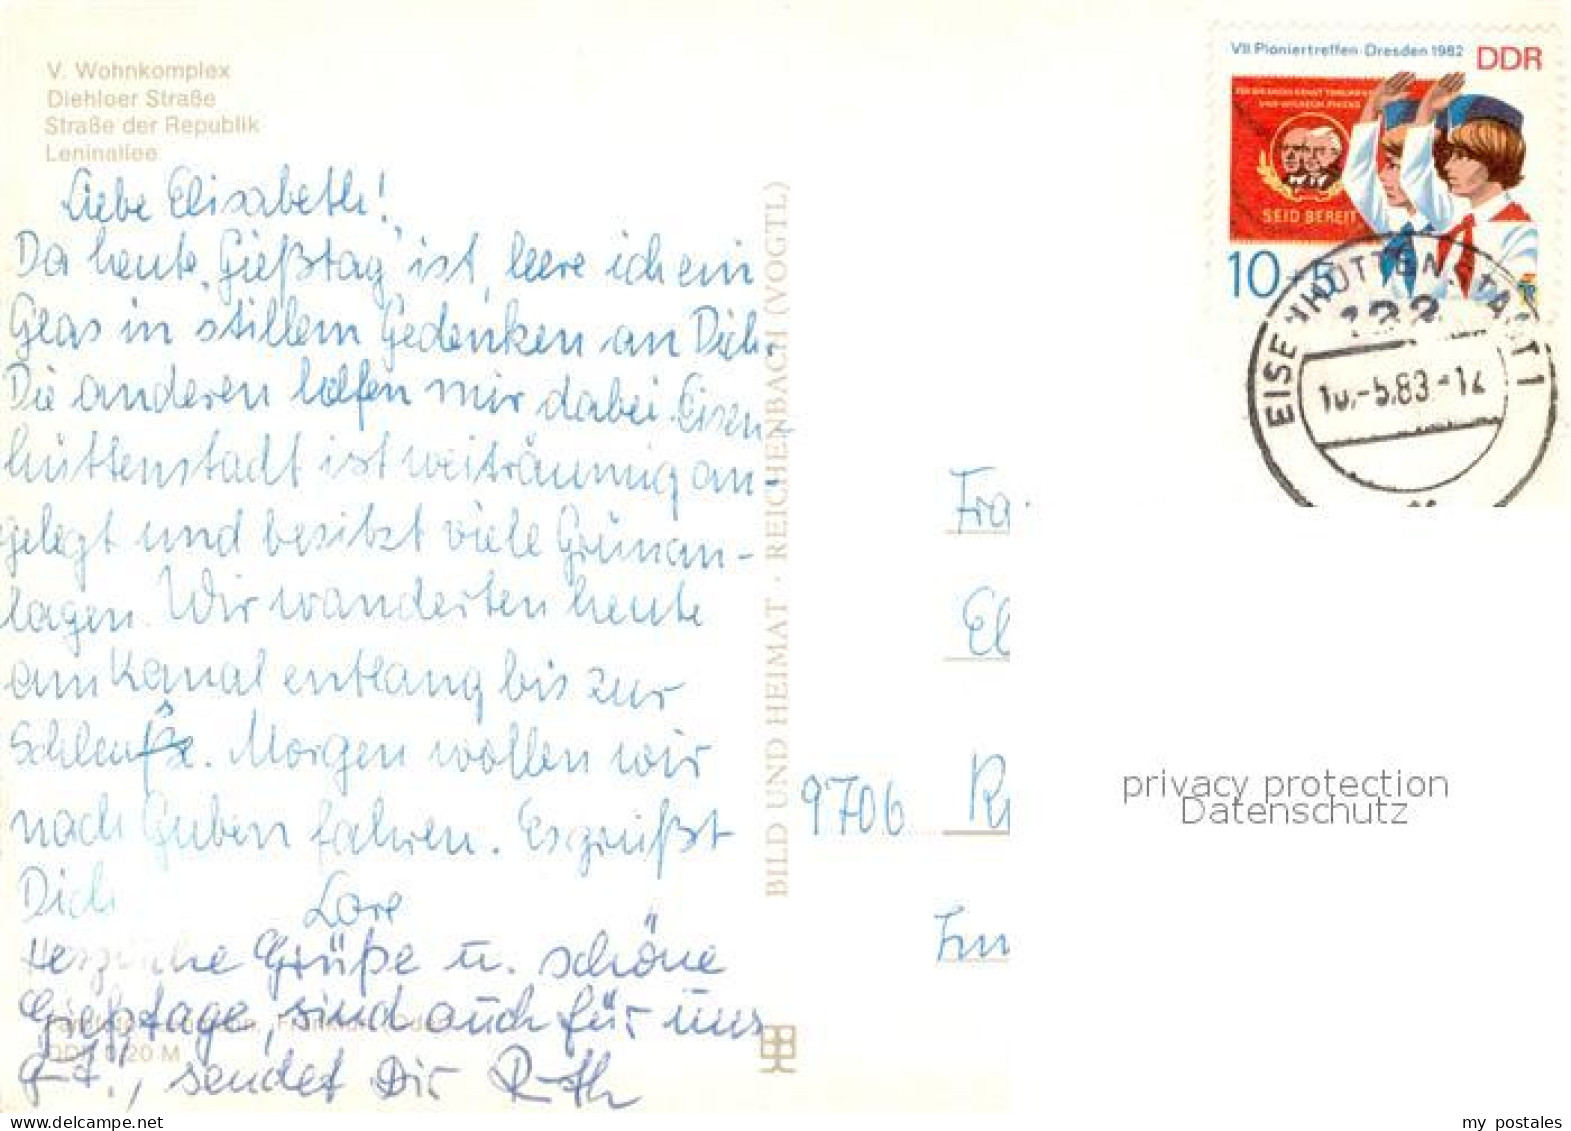 V. Wohnkomplex
Diehloer Straße
Straße der Republik
Leninallee
Liebe Elisabeth!
Da heute „Gießtag" ist, leere ich ein
Glas in stillem Gedenken an Dich.
Die anderen helfen mir dabei. Eisen-
hüttenstadt ist weiträumig an-
gelegt und besitzt viele Grünan-
lagen. Wir wanderten heute
am Kanal entlang bis zur
Schleuse. Morgen wollen wir
nach Guben fahren. Es grüßt
Dich
Lore
Herzliche Grüße u. schöne
Gießtage, sind auch für uns
sendet Dir Ruth
DDR 0,20 M
BILD UND HEIMAT · REICHENBACH (VOGTL)
VII Pioniertreffen · Dresden 1982 DDR
SEID BEREIT
10+5
EISENHÜTTENSTADT 1
122
-5.83-12
Fra
El
9706
privacy protection
Datenschutz
www.delcampe.net
my_postales